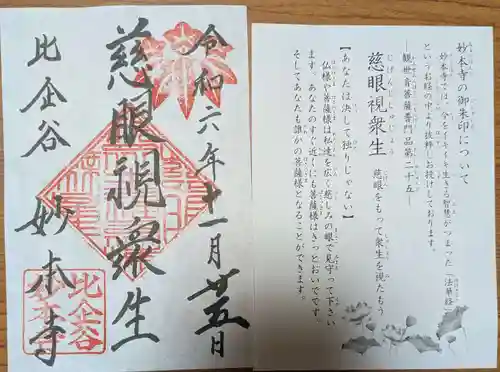 令和六年十一月廿五日
慈眼視衆生
比企谷 妙本寺
比企谷
妙本寺
妙本寺の御朱印について
妙本寺では、今をイキイキ生きる智慧がつまった「法華経」
というお経の中より抜粋しお授けしております。
―観世音菩薩普門品第二十五―
慈眼視衆生 慈眼をもって衆生を視たもう
じげんじしゅじょう
【あなたは決して独りじゃない】
仏様や菩薩様は私達を広く慈しみの眼で見守って下さい
ます。あなたのすぐ近くにも菩薩様はきっとおいでです。
そしてあなたも誰かの菩薩様となることができます。